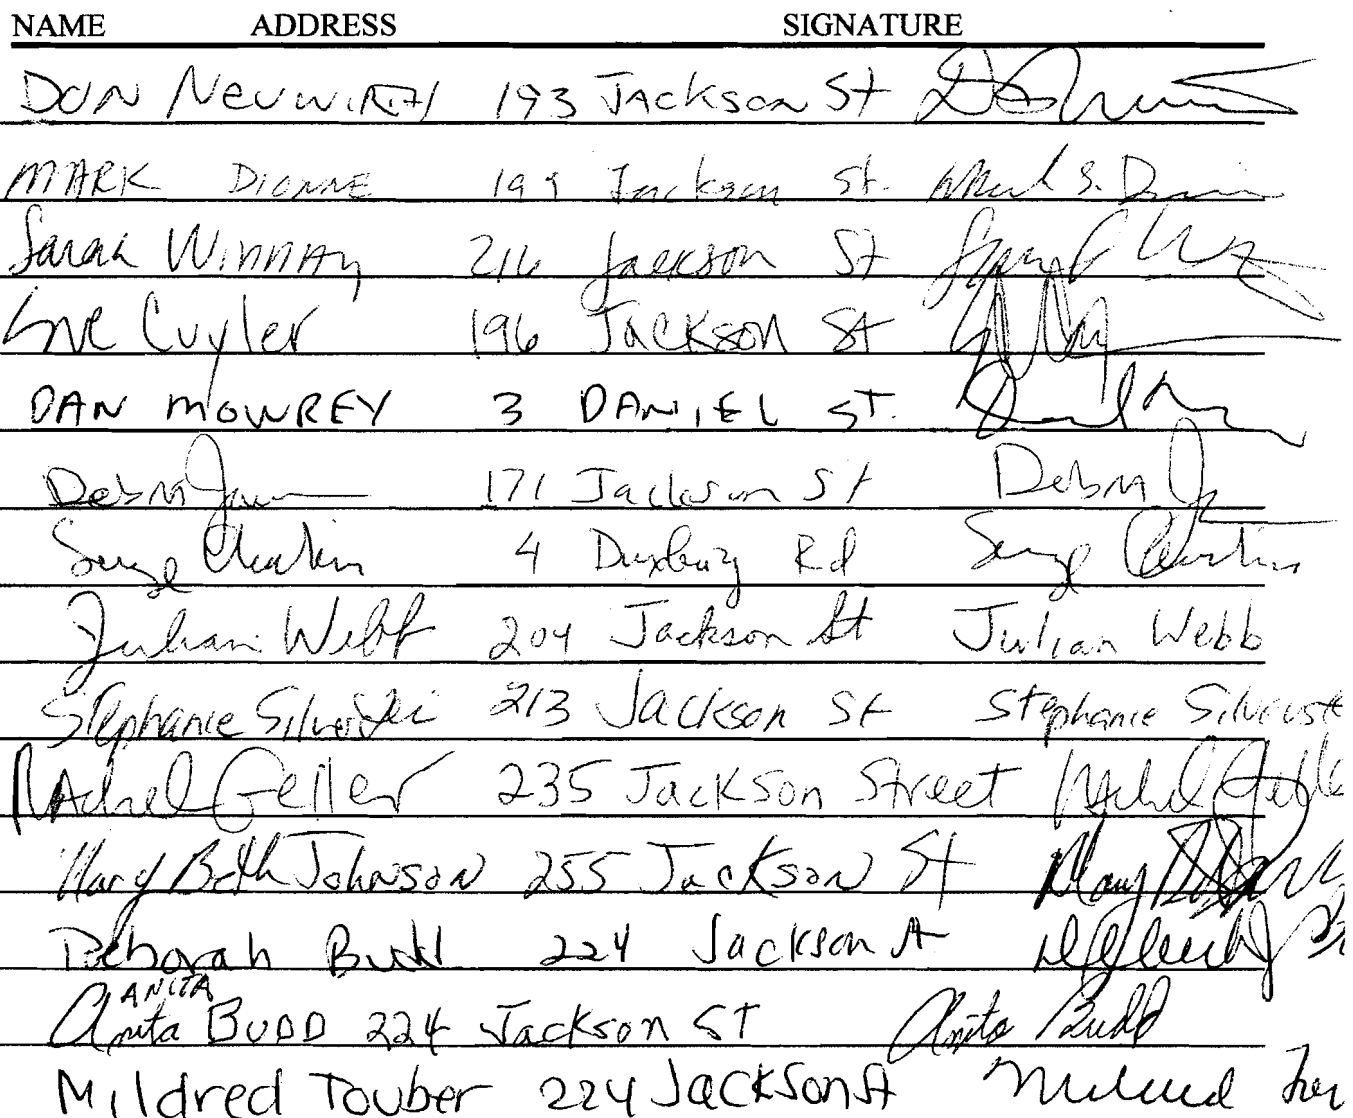 NAME ADDRESS SIGNATURE
DON NEUWIRTH 193 Jackson St
MARK DIONNE 199 Jackson St. Mark S.
Sarah 216 Jackson St
Cuyler 196 Jackson St
DAN MOWREY 3 DANIEL ST.
Debra 171 Jackson St Debra
Serge 4 Duxbury Rd Serge
Julian Webb 204 Jackson St Julian Webb
Stephanie 213 Jackson St Stephanie
Rachel Geller 235 Jackson Street
Mary Beth Johnson 255 Jackson St Mary
Deborah Budd 224 Jackson St
ANITA
Anita BUDD 224 Jackson ST Anita Budd
Mildred Touber 224 Jackson St Mildred